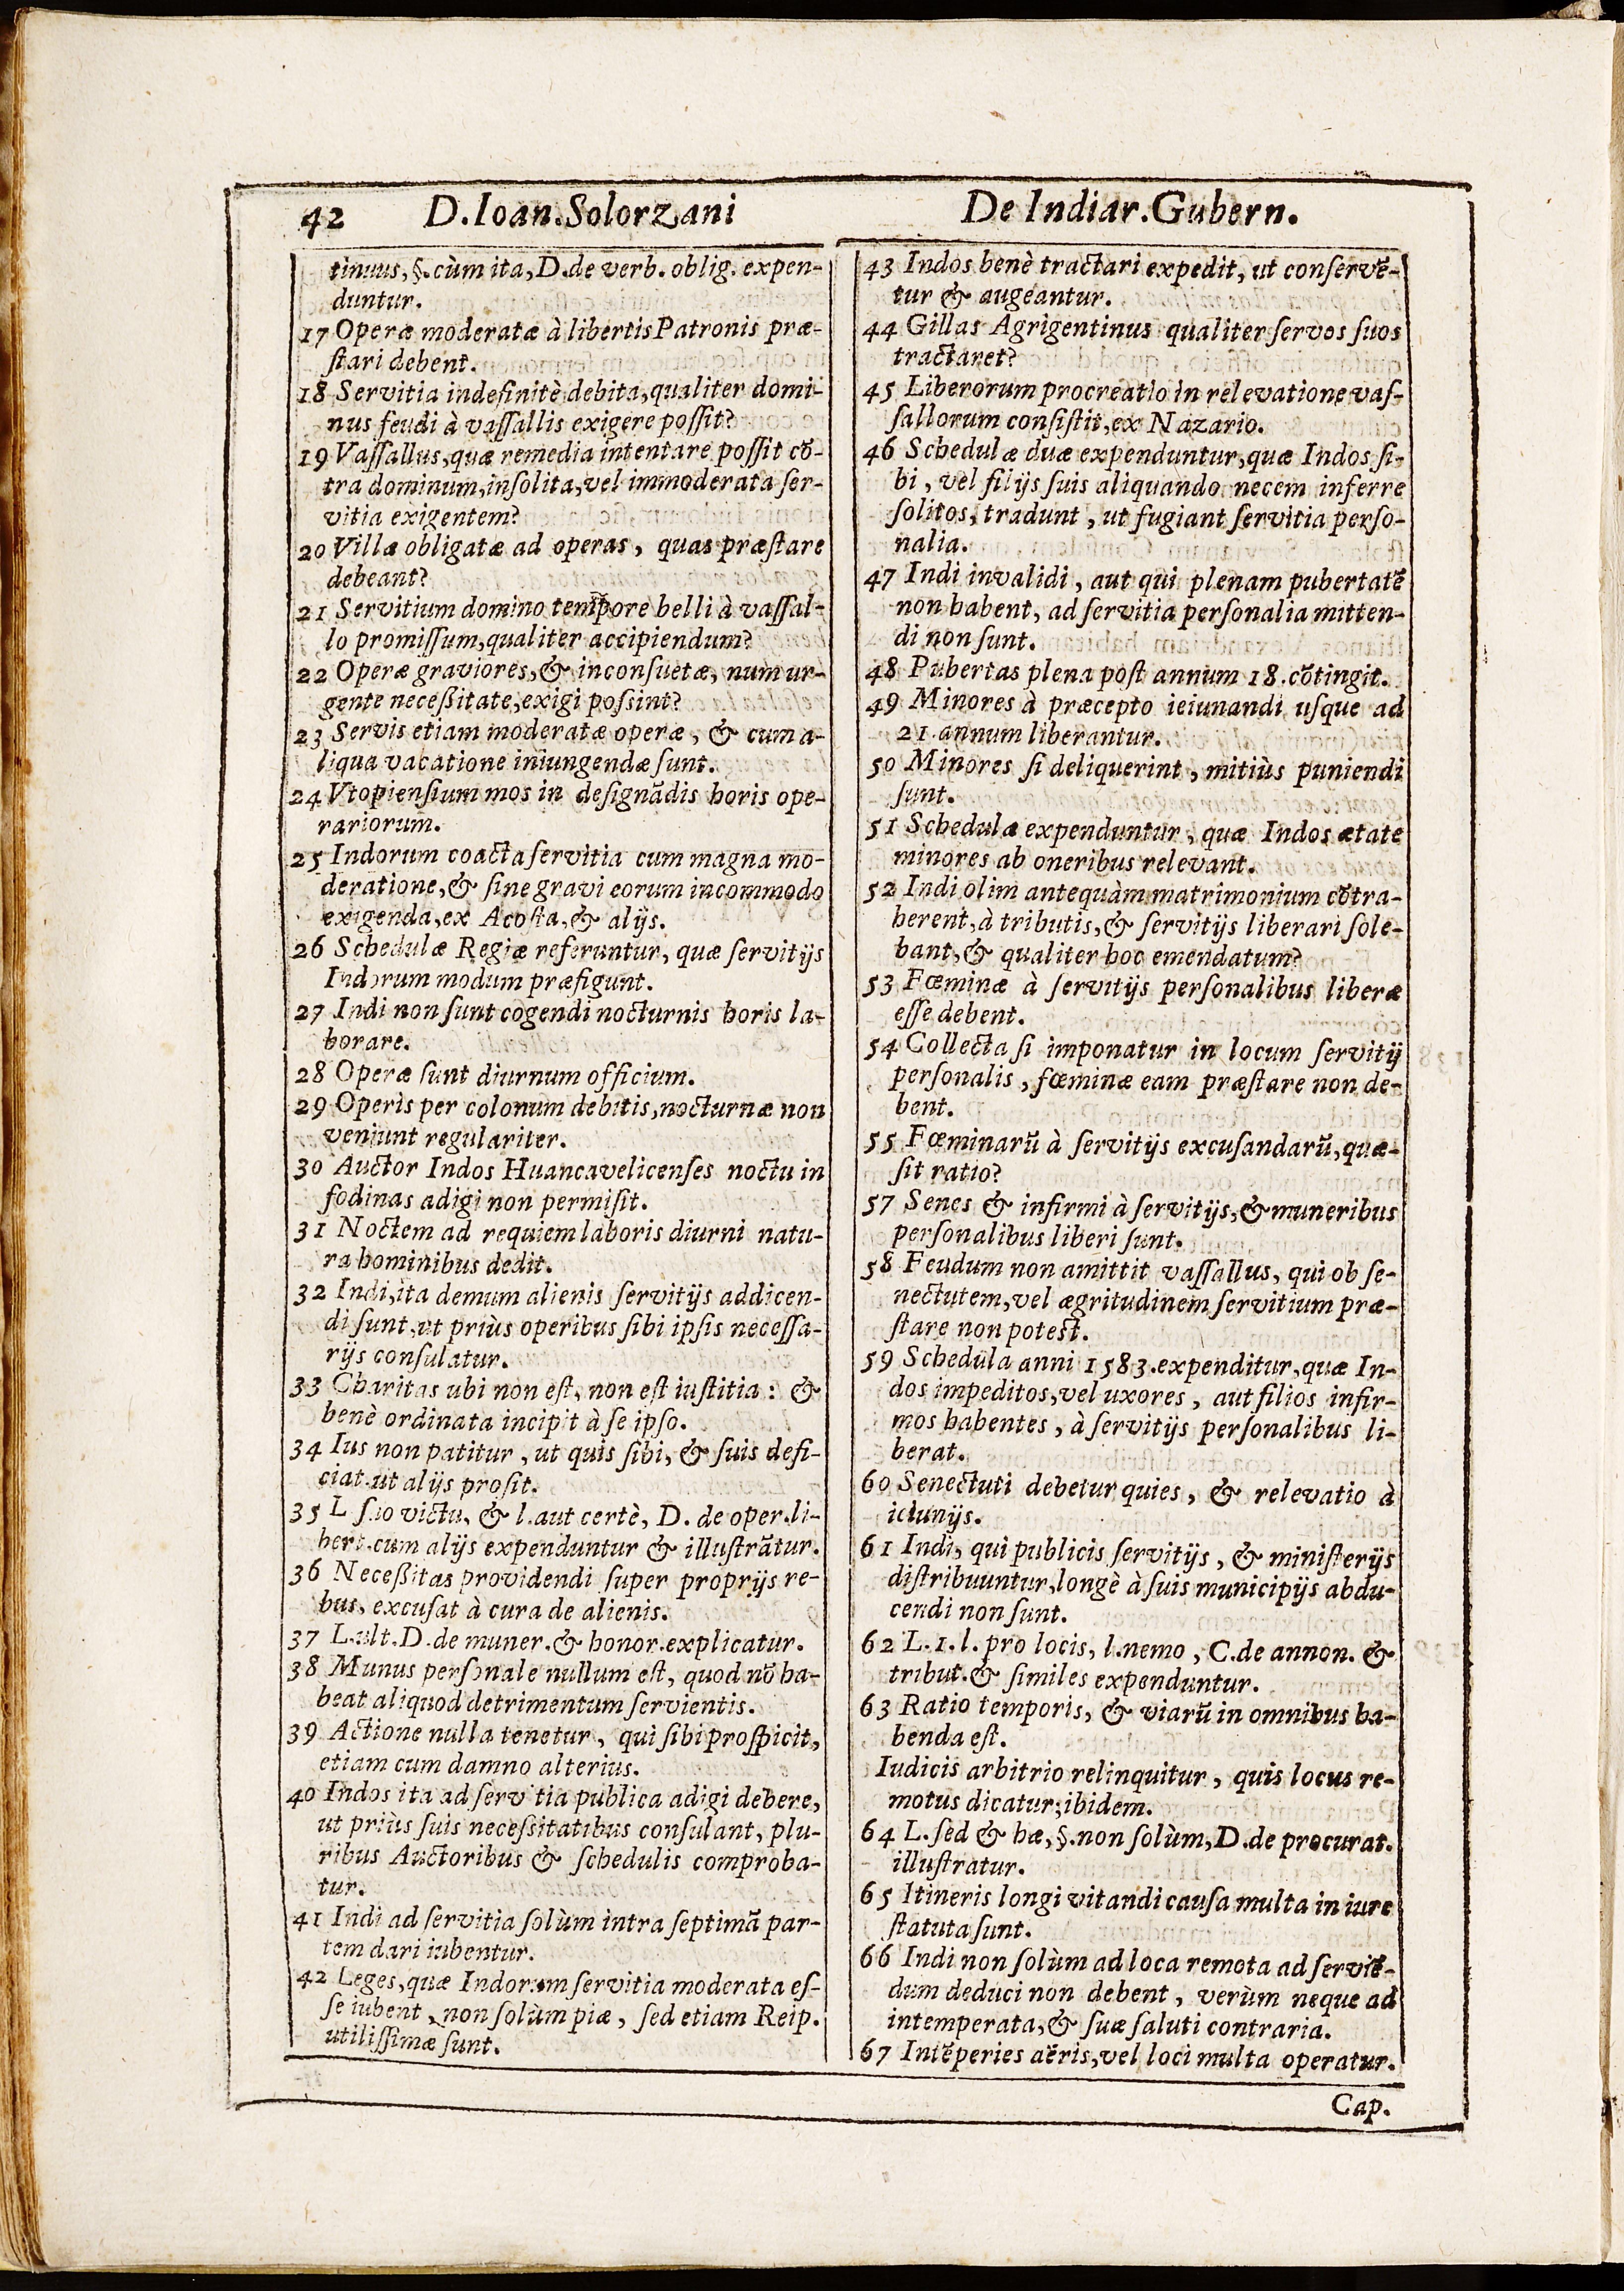 42 D.Ioan.Solorzani De Indiar.Gubern.
tinuus, §.cùm ita, D.de verb. oblig. expen-
duntur.
17 Operæ moderatæ à libertis Patronis præ-
ſtari debent.
18 Servitia indefinitè debita, qualiter domi-
nus feudi à vaſſallis exigere poſſit?
19 Vaſſallus, quæ remedia intentare poſſit cō-
tra dominum, inſolita, vel immoderata ſer-
vitia exigentem?
20 Villæ obligatæ ad operas, quas præſtare
debeant?
21 Servitium domino tempore belli à vaſſal-
lo promiſſum, qualiter accipiendum?
22 Operæ graviores, & inconſuetæ, num ur-
gente neceßitate, exigi poſsint?
23 Servis etiam moderatæ operæ, & cum a-
liqua vacatione iniungendæ ſunt.
24 Vtopienſium mos in deſignādis horis ope-
rariorum.
25 Indorum coacta ſervitia cum magna mo-
deratione, & ſine gravi eorum incommodo
exigenda, ex Acoſta, & alijs.
26 Schedulæ Regiæ referuntur, quæ ſervitijs
Indorum modum præfigunt.
27 Indi non ſunt cogendi nocturnis horis la-
borare.
28 Operæ ſunt diurnum officium.
29 Operis per colonum debitis, nocturnæ non
veniunt regulariter.
30 Auctor Indos Huancavelicenſes noctu in
fodinas adigi non permiſit.
31 Noctem ad requiem laboris diurni natu-
ra hominibus dedit.
32 Indi, ita demum alienis ſervitijs addicen-
di ſunt, ut priùs operibus ſibi ipſis neceſſa-
rijs conſulatur.
33 Charitas ubi non eſt, non eſt iuſtitia: &
benè ordinata incipit à ſe ipſo.
34 Ius non patitur, ut quis ſibi, & ſuis defi-
ciat ut alijs proſit.
35 L ſuo victu, & l.aut certè, D. de oper.li-
bert.cum alijs expenduntur & illuſtrātur.
36 Neceßitas providendi ſuper proprijs re-
bus, excuſat à cura de alienis.
37 L.ult.D.de muner.& honor.explicatur.
38 Munus perſonale nullum eſt, quod nō ha-
beat aliquod detrimentum ſervientis.
39 Actione nulla tenetur, qui ſibi proſpicit,
etiam cum damno alterius.
40 Indos ita ad ſervitia publica adigi debere,
ut priùs ſuis neceſsitatibus conſulant, plu-
ribus Auctoribus & ſchedulis comproba-
tur.
41 Indi ad ſervitia ſolùm intra ſeptimā par-
tem dari iubentur.
42 Leges, quæ Indorum ſervitia moderata eſ-
ſe iubent, non ſolùm piæ, ſed etiam Reip.
utiliſſimæ ſunt.
43 Indos benè tractari expedit, ut conſervē-
tur & augeantur.
44 Gillas Agrigentinus qualiter ſervos ſuos
tractaret?
45 Liberorum procreatio in relevatione vaſ-
ſallorum conſiſtit, ex Nazario.
46 Schedulæ duæ expenduntur, quæ Indos ſi-
bi, vel filijs ſuis aliquando necem inferre
ſolitos, tradunt, ut fugiant ſervitia perſo-
nalia.
47 Indi invalidi, aut qui plenam pubertatē
non habent, ad ſervitia perſonalia mitten-
di non ſunt.
48 Pubertas plena poſt annum 18.cōtingit.
49 Minores à præcepto ieiunandi uſque ad
21.annum liberantur.
50 Minores ſi deliquerint, mitiùs puniendi
ſunt.
51 Schedulæ expenduntur, quæ Indos ætate
minores ab oneribus relevant.
52 Indi olim antequàm matrimonium cōtra-
herent, à tributis, & ſervitijs liberari ſole-
bant, & qualiter hoc emendatum?
53 Fœminæ à ſervitijs perſonalibus liberæ
eſſe debent.
54 Collecta ſi imponatur in locum ſervitij
perſonalis, fœminæ eam præſtare non de-
bent.
55 Fœminarū à ſervitijs excuſandarū, quæ-
ſit ratio?
57 Senes & infirmi à ſervitijs, & muneribus
perſonalibus liberi ſunt.
58 Feudum non amittit vaſſallus, qui ob ſe-
nectutem, vel ægritudinem ſervitium præ-
ſtare non poteſt.
59 Schedula anni 1583.expenditur, quæ In-
dos impeditos, vel uxores, aut filios infir-
mos habentes, à ſervitijs perſonalibus li-
berat.
60 Senectuti debetur quies, & relevatio à
ieiunijs.
61 Indi, qui publicis ſervitijs, & miniſterijs
diſtribuuntur, longè à ſuis municipijs abdu-
cendi non ſunt.
62 L.1.l. pro locis, l.nemo, C.de annon. &
tribut.& ſimiles expenduntur.
63 Ratio temporis, & viarū in omnibus ha-
benda eſt.
Iudicis arbitrio relinquitur, quis locus re-
motus dicatur; ibidem.
64 L.ſed & hæ, §.non ſolùm, D.de procurat.
illuſtratur.
65 Itineris longi vitandi cauſa multa in iure
ſtatuta ſunt.
66 Indi non ſolùm ad loca remota ad ſerviē-
dum deduci non debent, verùm neque ad
intemperata, & ſuæ ſaluti contraria.
67 Intēperies aëris, vel loci multa operatur.
Cap.